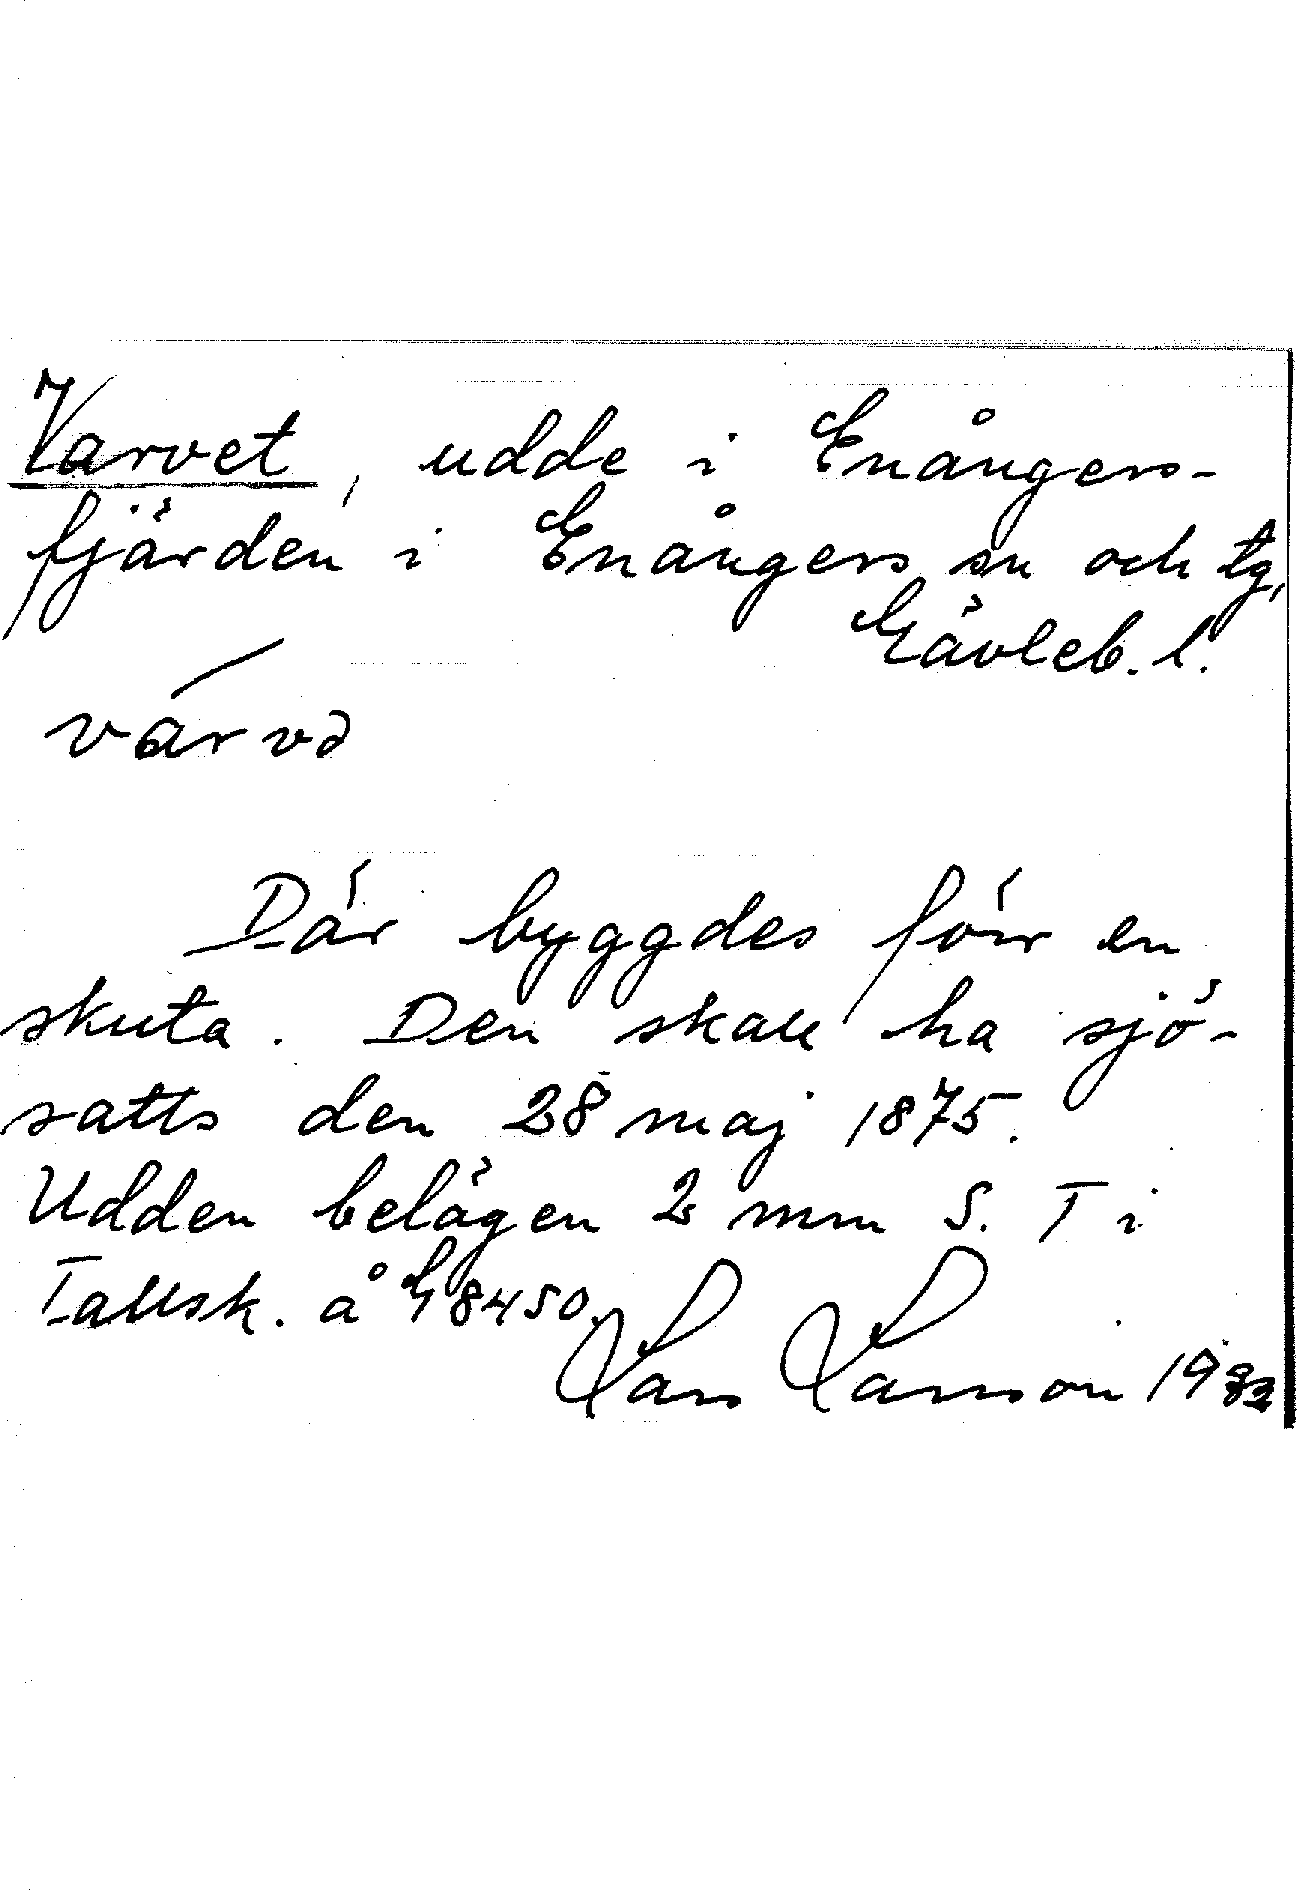 Varvet, udde i Enångers-
fjärden i Enångers sn och tg,
Gävleb. l.
varvə
Där byggdes förr en
skuta. Den skall ha sjö-
satts den 28 maj 1875.
Udden belägen 2 mm S. T i
Tallsk. å G8450.
Lars Larsson 1982